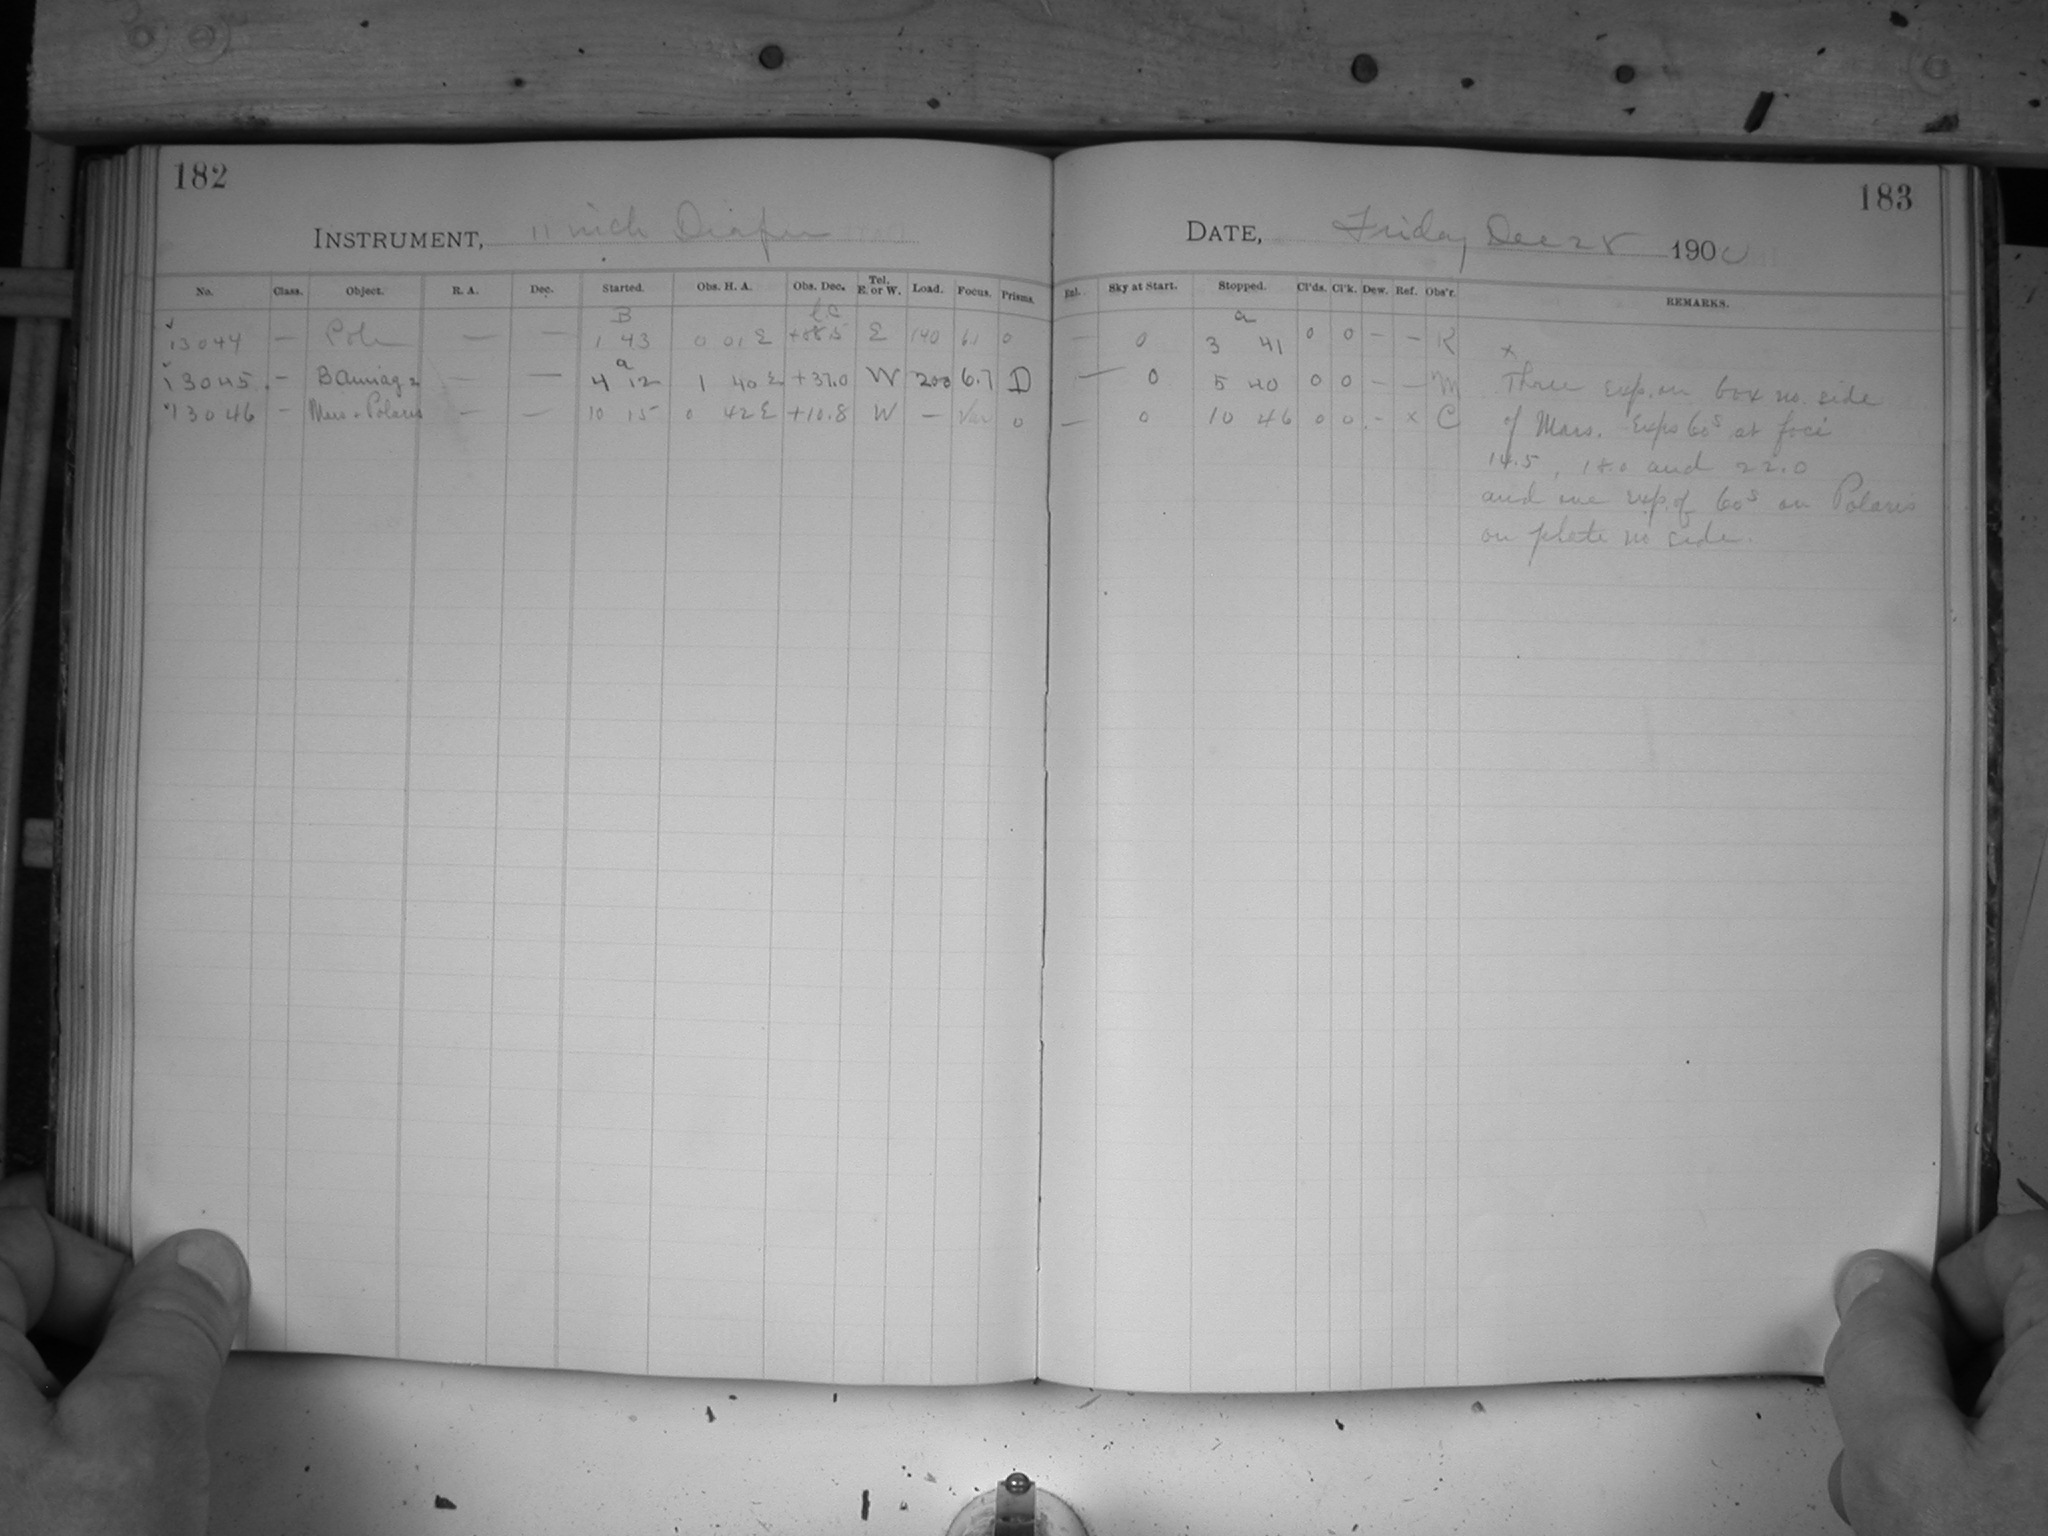 182
INSTRUMENT, 11 inch Draper
No. Class. Object. R. A. Dec. Started. Obs. H. A. Obs. Dec. Tel. E. or W. Load. Focus. Prisms.
B
13044 — Pole — — 1 43 0 01 E +88.5 E 140 6.1 0
a
13045 — B Aurigæ — — 4 12 1 40 E +37.0 W 200 6.7 D
13046 — Mars + Polaris — — 10 15 0 42 E +10.8 W — Var 0
183
DATE, Friday Dec 28 1900
Sky at Start. Stopped. Cl'ds. Cl'k. Dew. Ref. Obs'r. REMARKS.
a
— 0 3 41 0 0 — — R
— 0 5 40 0 0 — — M
— 0 10 46 0 0 — x C
x
Three exp. on box no. side
of Mars. Exps 60s at foci
14.5, 18.0 and 22.0
and one exp. of 60s on Polaris
on plate no side.